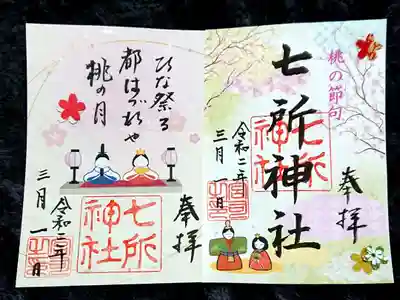 奉拝
桃の節句
七所神社
七所
神社
令和二年
三月一日
ひな祭る
都はづれや
桃の月
奉拝
七所
神社
令和二年
三月一日